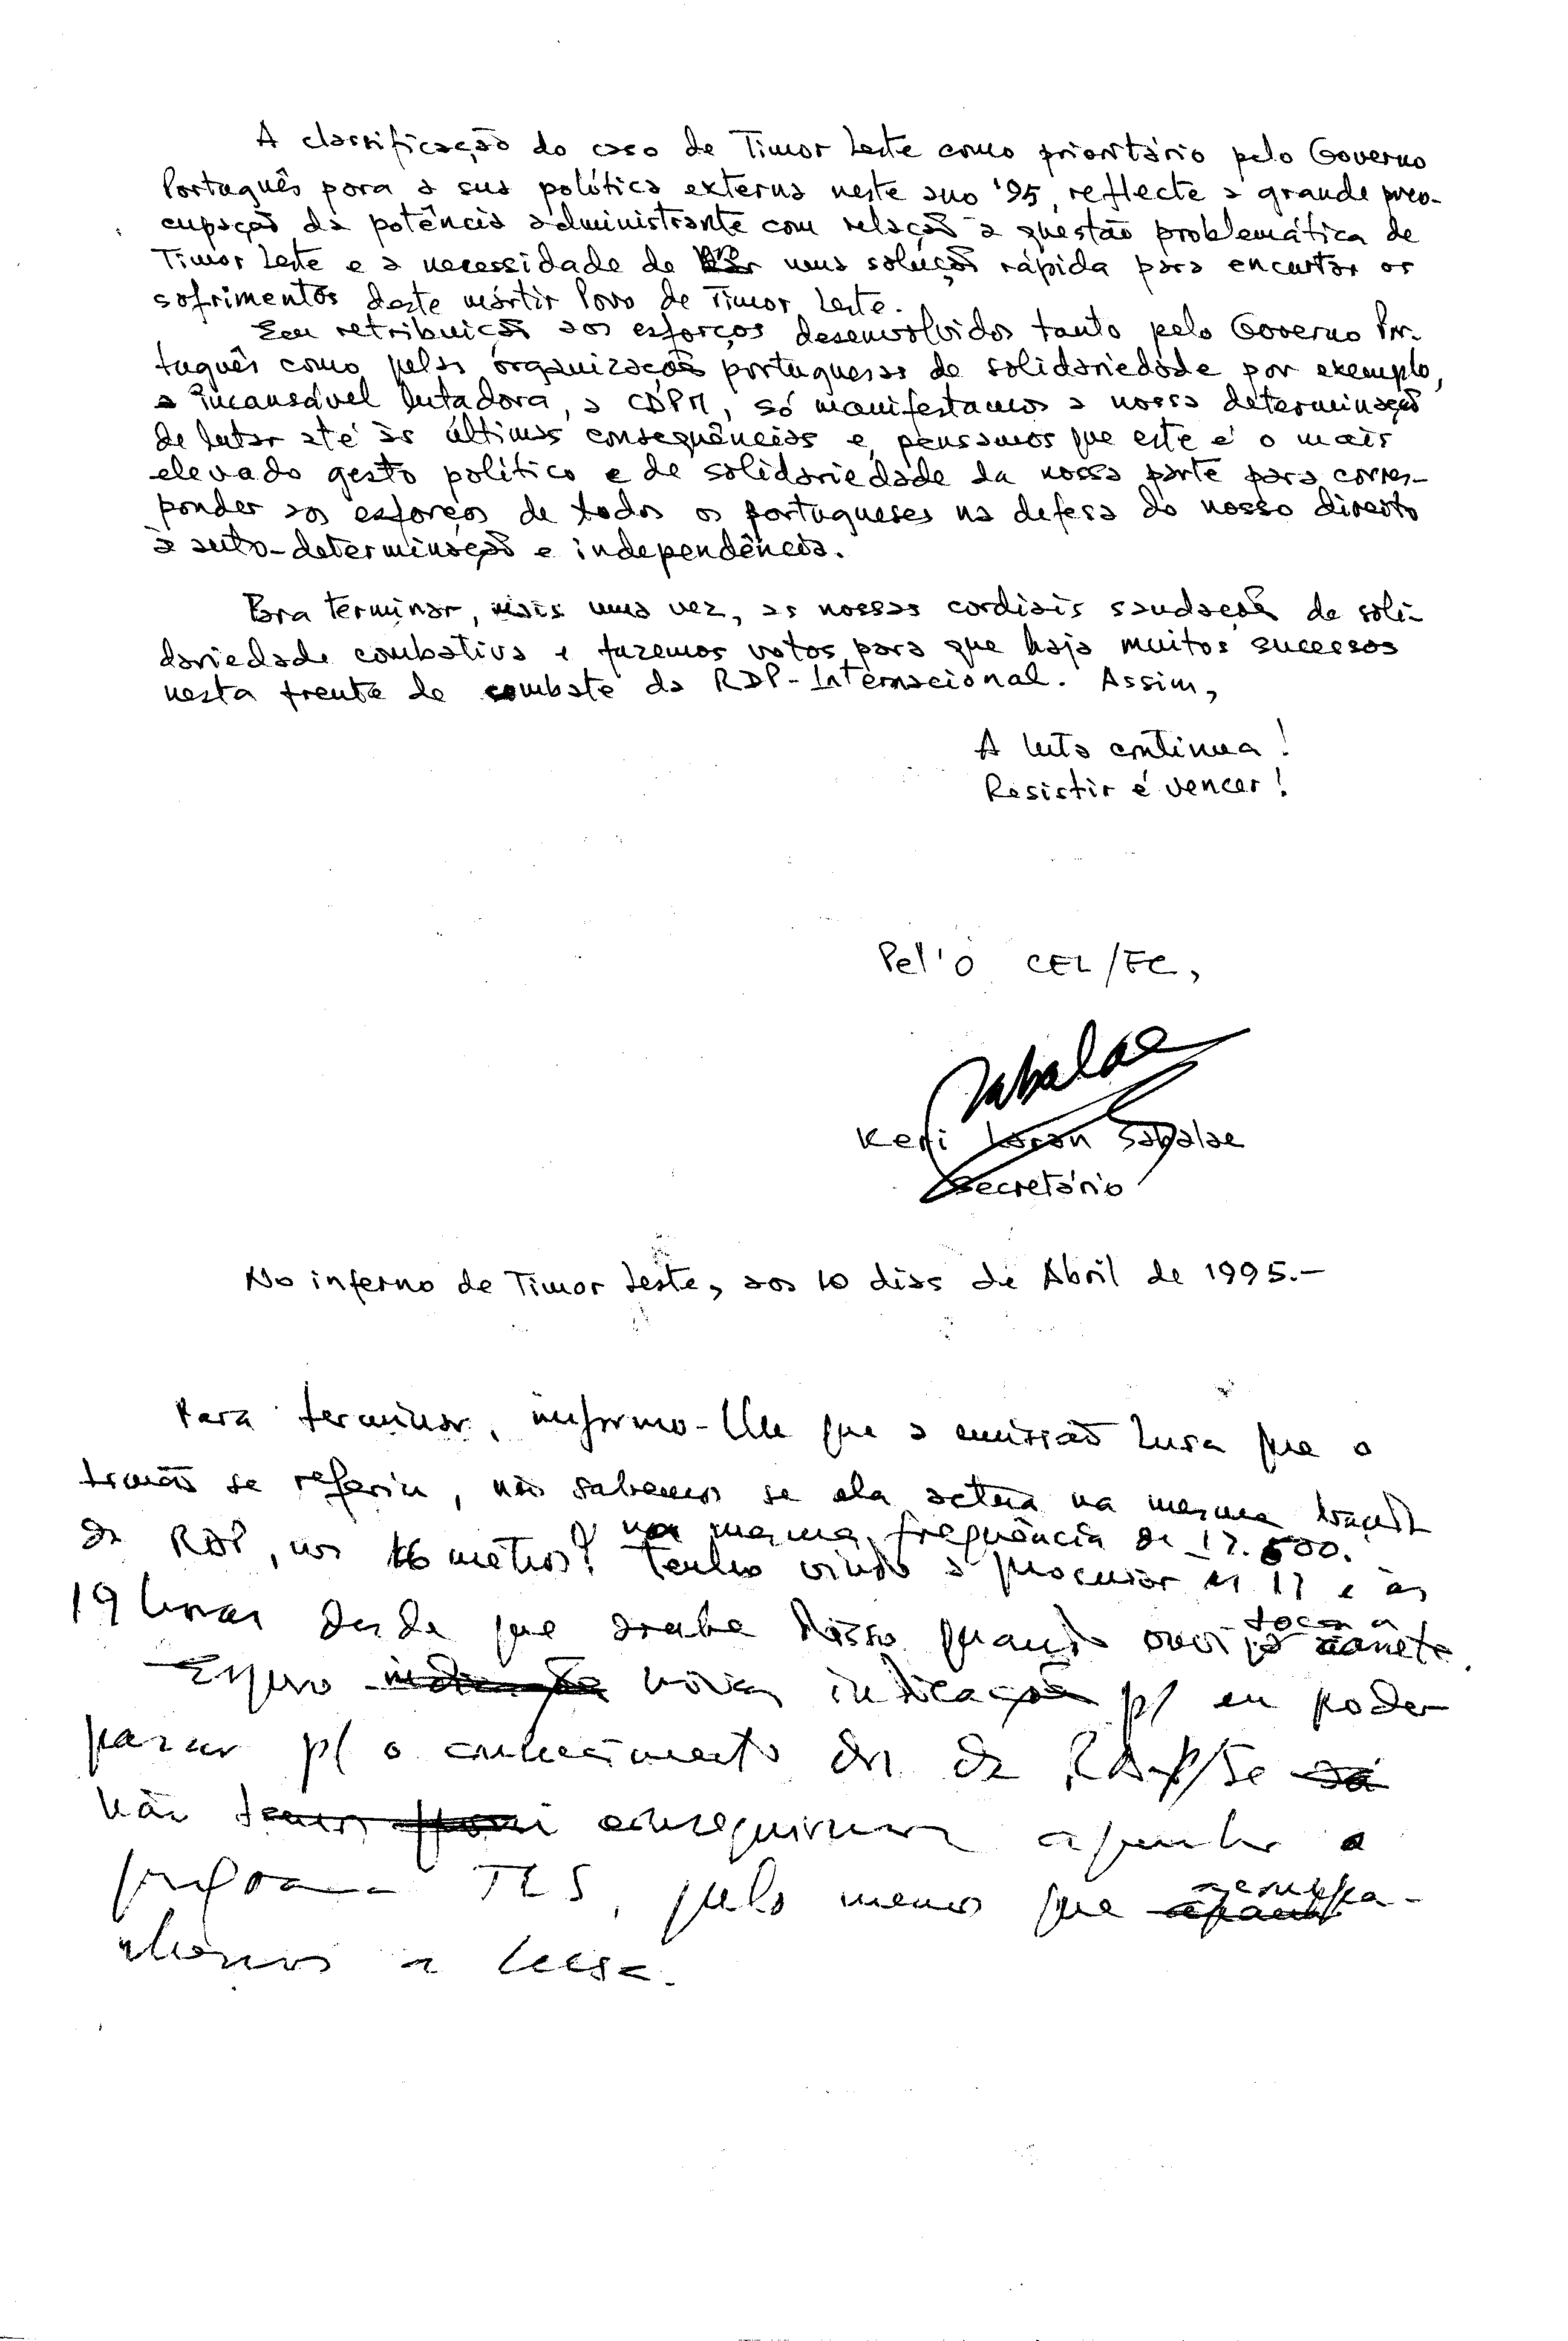 A classificação do caso de Timor Leste como prioritário pelo Governo
Português para a sua política externa neste ano '95, reflecte a grande preo-
cupação da potência administrante com relação à questão problemática de
Timor Leste e a necessidade de uma solução rápida para encurtar os
sofrimentos deste mártir Povo de Timor Leste.
Em retribuição aos esforços desenvolvidos tanto pelo Governo Por-
tuguês como pelas organizações portuguesas de solidariedade por exemplo,
a incansável lutadora, a CDPM, só manifestamos a nossa determinação
de lutar até às últimas consequências e pensamos que este é o mais
elevado gesto político e de solidariedade da nossa parte para corres-
ponder aos esforços de todos os portugueses na defesa do nosso direito
à auto-determinação e independência.
Para terminar, mais uma vez, as nossas cordiais saudações de soli-
dariedade combativa e fazemos votos para que haja muitos sucessos
nesta frente de combate da RDP-Internacional. Assim,
A luta continua!
Resistir é vencer!
Pel'O CEL/FC,
Sabalae
Keri Laran Sabalae
Secretário
No inferno de Timor Leste, aos 10 dias de Abril de 1995.-
Para terminar, informo-lhe que a emissão Lusa que o
Irmão se referiu, não sabemos se ela actua na mesma
da RDP, nos 16 metros? na mesma frequência de 17.500.
Tenho vindo a procurar às 17 e às
19 horas desde que soube disso quando ouvi tocar a
Espero novas indicações p/ eu poder
passar p/ o conhecimento dos da RDP/Se
não conseguirmos apanhar o
programa TLS, pelo menos que acompa-
nhemos a Lusa.